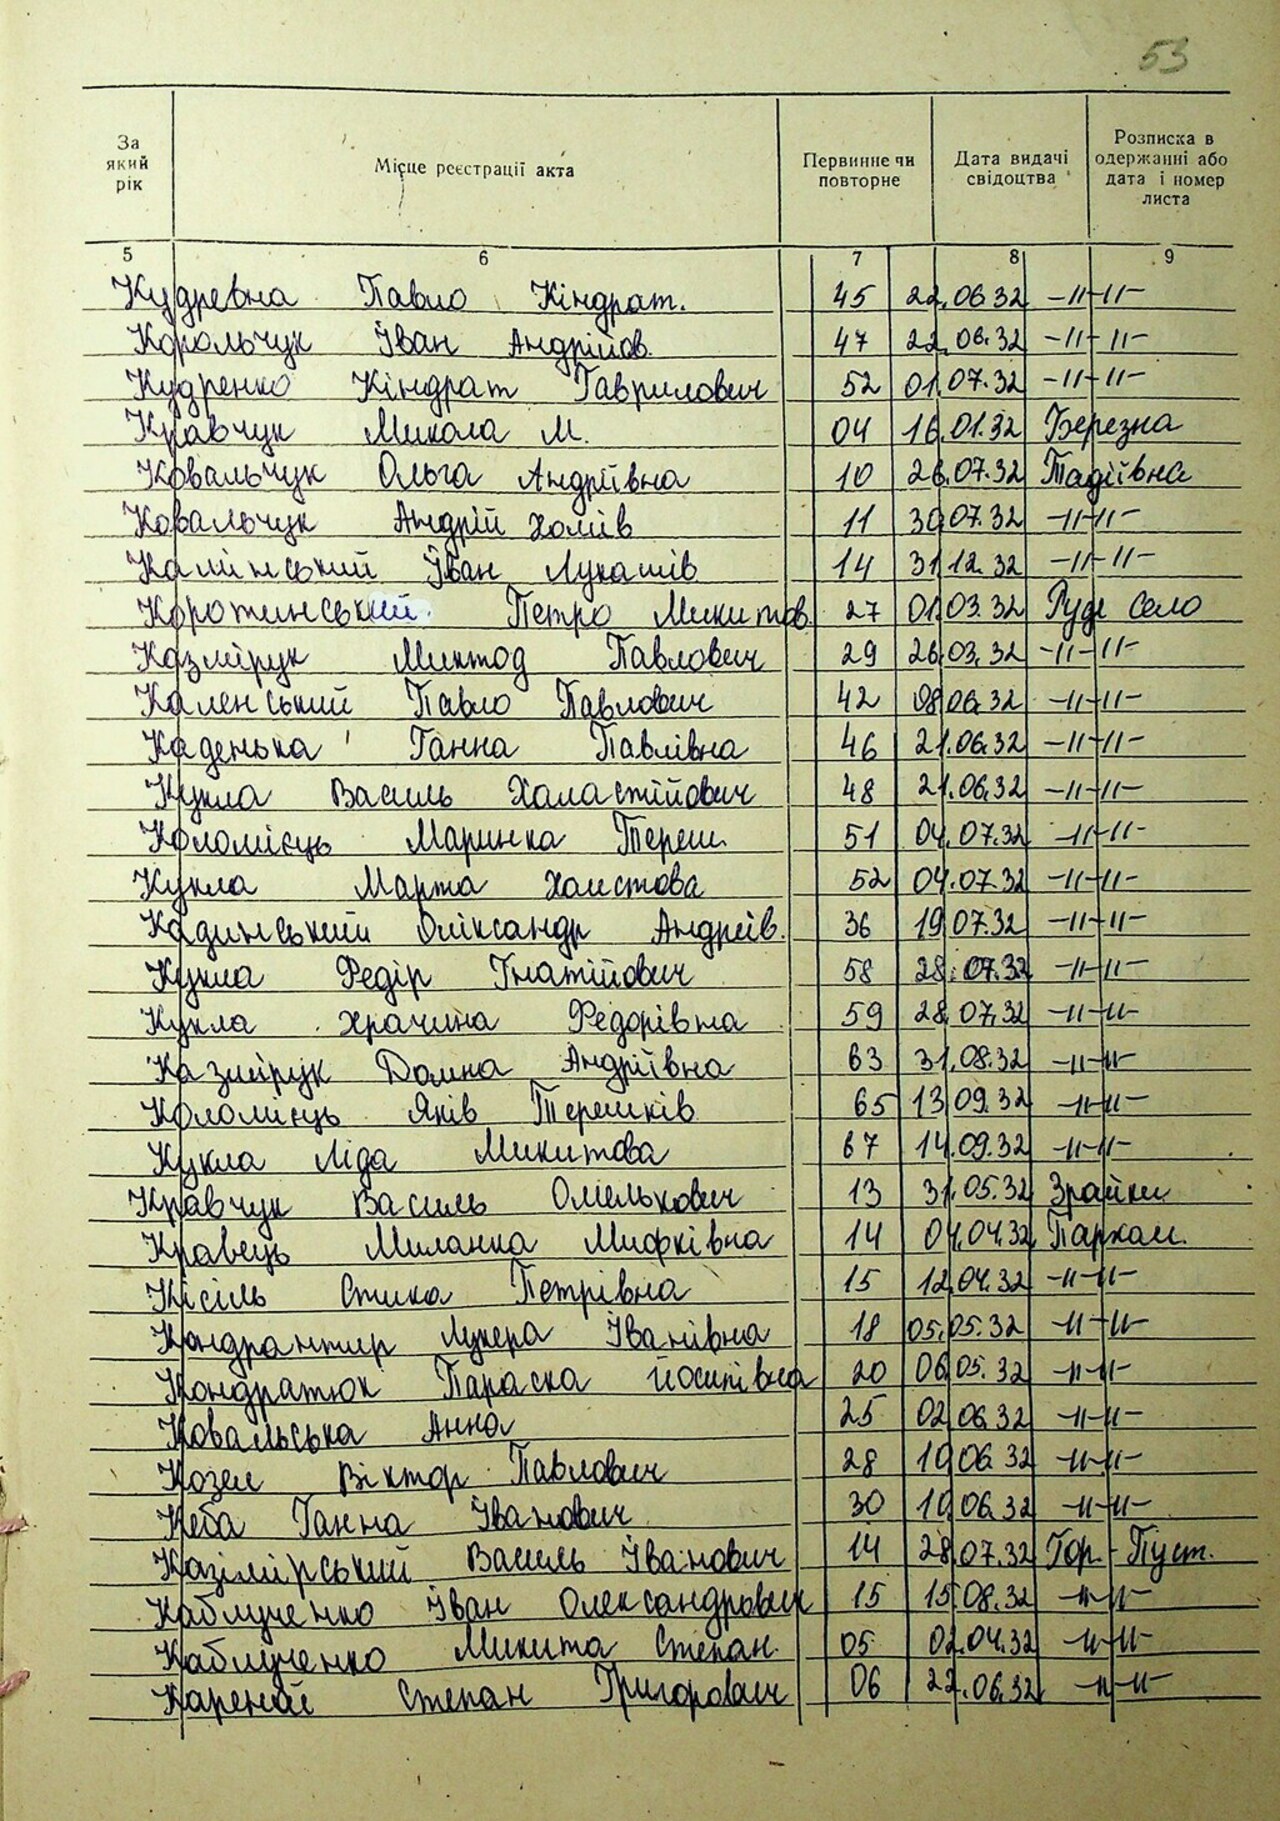 53
За який рік | Місце реєстрації акта | Первинне чи повторне | Дата видачі свідоцтва | Розписка в одержанні або дата і номер листа
5 6 7 8 9
Кудревна Павло Кіндрат. 45 22.06.32 -//-//-
Корольчук Іван Андрійов. 47 22.06.32 -//-//-
Кудренко Кіндрат Гаврилович 52 01.07.32 -//-//-
Кравчук Микола М. 04 16.01.32 Березна
Ковальчук Ольга Андріївна 10 26.07.32 Тадіївна
Ковальчук Андрій Хомів 11 30.07.32 -//-//-
Камінський Іван Лукашів 14 31.12.32 -//-//-
Коротинський Петро Микитов. 27 01.03.32 Руде Село
Казмірук Миктод Павлович 29 26.03.32 -//-//-
Каленський Павло Павлович 42 08.06.32 -//-//-
Каденька Ганна Павлівна 46 21.06.32 -//-//-
Кукла Василь Халастійович 48 21.06.32 -//-//-
Коломієць Маринка Тереш. 51 04.07.32 -//-//-
Кукла Марта Халстова 52 04.07.32 -//-//-
Кадинський Оліксандр Андреїв. 36 19.07.32 -//-//-
Кукла Федір Гнатійович 58 28.07.32 -//-//-
Кукла Храчина Федорівна 59 28.07.32 -//-//-
Казмірук Домна Андріївна 63 31.08.32 -//-//-
Коломієць Яків Терешків 65 13.09.32 -//-//-
Кукла Ліда Микитова 67 14.09.32 -//-//-
Кравчук Василь Омелькович 13 31.05.32 Зрайки
Кравець Миланка Мифківна 14 04.04.32 Пархом.
Кісіль Стиха Петрівна 15 12.04.32 -//-//-
Кондрантир Лукера Іванівна 18 05.05.32 -//-//-
Кондратюк Параска Йосипівна 20 06.05.32 -//-//-
Ковальська Анна 25 02.06.32 -//-//-
Козел Віктор Павлович 28 10.06.32 -//-//-
Кеба Ганна Іванович 30 10.06.32 -//-//-
Казімірський Василь Іванович 14 28.07.32 Гор-Пуст.
Каблученко Іван Олександрович 15 15.08.32 -//-//-
Каблученко Микита Степан. 05 02.04.32 -//-//-
Степан Григорович 06 22.06.32 -//-//-